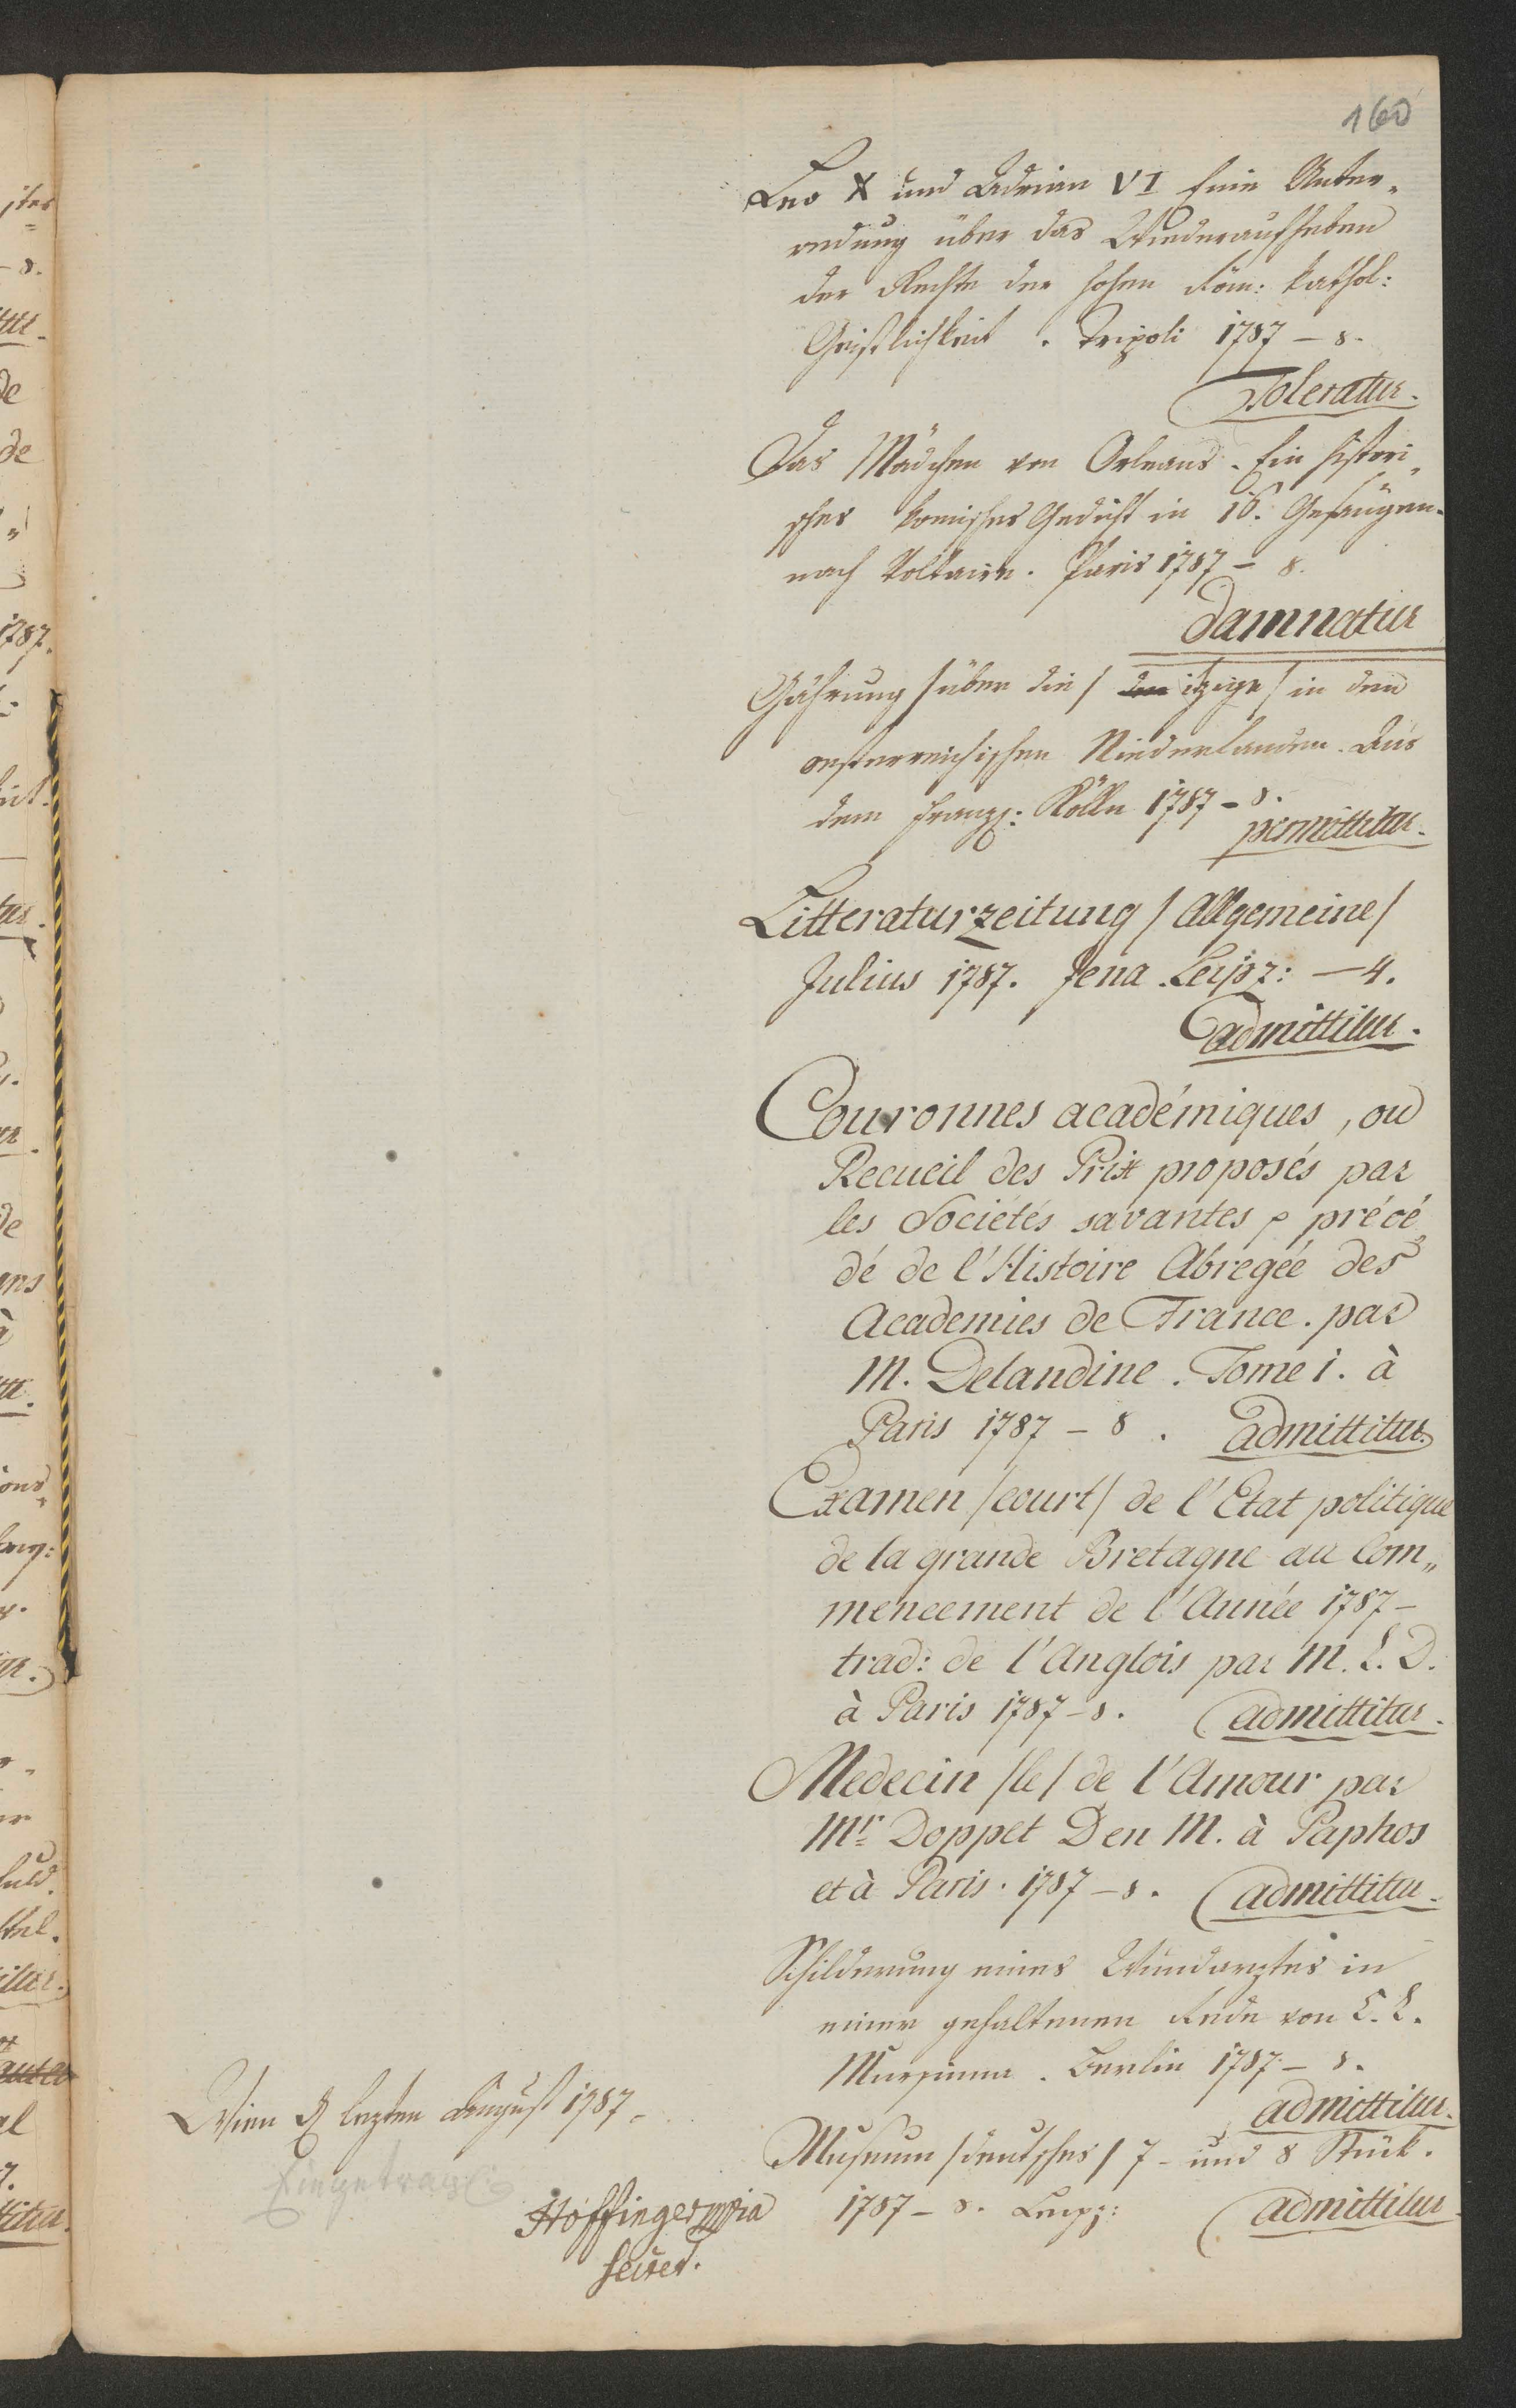 160
Leo X und Adrian VI Eine Unter-
redung über das Wiederaufheben
der Rechte der hohen Röm: kathol:
Geistlichkeit. Tripoli 1787 – 8.
Toleratur.
Das Mädchen von Orleans. Ein histori„
sches komisches Gedicht in 16. Gesängen.
nach Voltaire. Paris 1787 – 8.
Damnatur
Gährung /über die/ itzige/ in den
oesterreichischen Niederlanden. Aus
dem Franz: Kölln 1787 – 8.
permittitur.
Litteraturzeitung /Allgemeine/
Julius 1787. Jena. Leipz: – 4.
admittitur.
Couronnes académiques, ou
Recueil des Prix proposés par
les Sociétés savantes, précé„
dé de l'Histoire Abregée des
Academies de France. par
M. Delandine. Tome 1. à
Paris 1787 – 8. admittitur.
Examen /court/ de l'Etat politique
de la grande Bretagne au Com„
mencement de l'Année 1787 –
trad: de l'Anglois par M. L. D.
à Paris 1787 – 8. admittitur.
Medecin /le/ de l'Amour par
Mr. Doppet D en M. à Paphos
et à Paris. 1787 – 8. admittitur.
Schilderung eines Wundarztes in
einer gehaltenen Rede von C. L.
Mursinna. Berlin 1787 – 8.
admittitur.
Museum /deutsches/ 7 – und 8 Stück.
1787 – 8. Leipz: admittitur
Wien lezten August 1787.
Hoffinger